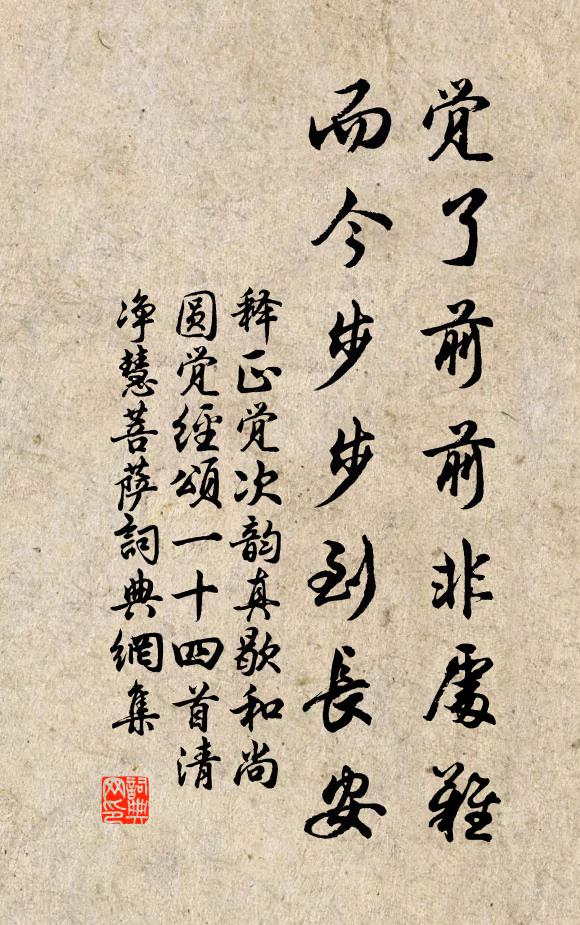 觉了前前非處難
而今步步到長安
释正觉次韵真歇和尚
圆觉經頌一十四首清
净慧菩萨詞典網集
詞典
网印